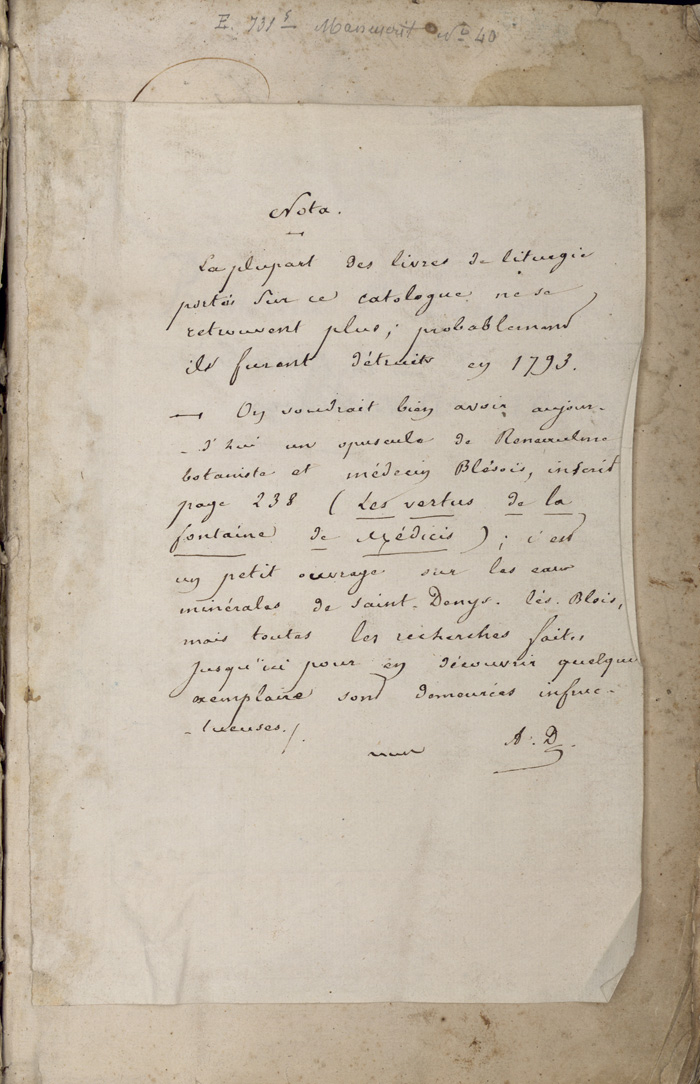 E. 731 ᵉ Manuscrit Nº 40
Nota.
La plupart des livres de liturgie
portés sur ce catalogue ne se
retrouvent plus; probablement
ils furent détruits en 1793.
— On voudrait bien avoir aujour-
-d'hui un opuscule de Reneaulme
botaniste et médecin Blésois, inscrit
page 238 (Les vertus de la
fontaine de Médicis); c'est
un petit ouvrage sur les eaux
minérales de saint-Denys-lés-Blois,
mais toutes les recherches faites
jusqu'ici pour en découvrir quelque
exemplaire sont demeurées infruc-
-tueuses./.
A. D.